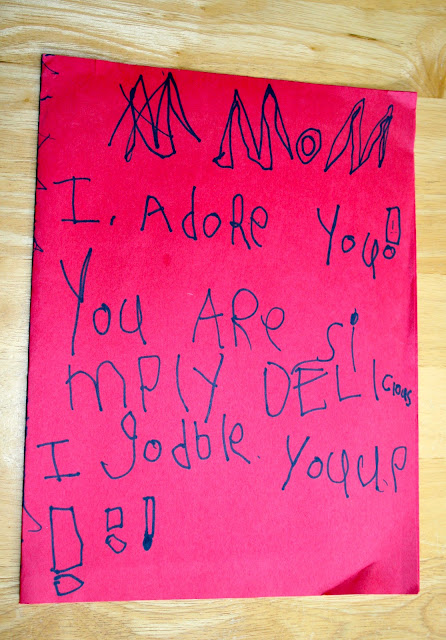 MOM
I. Adore You!
You ARe Si
mPlY DELICious
I godble. Youu.P
!!!